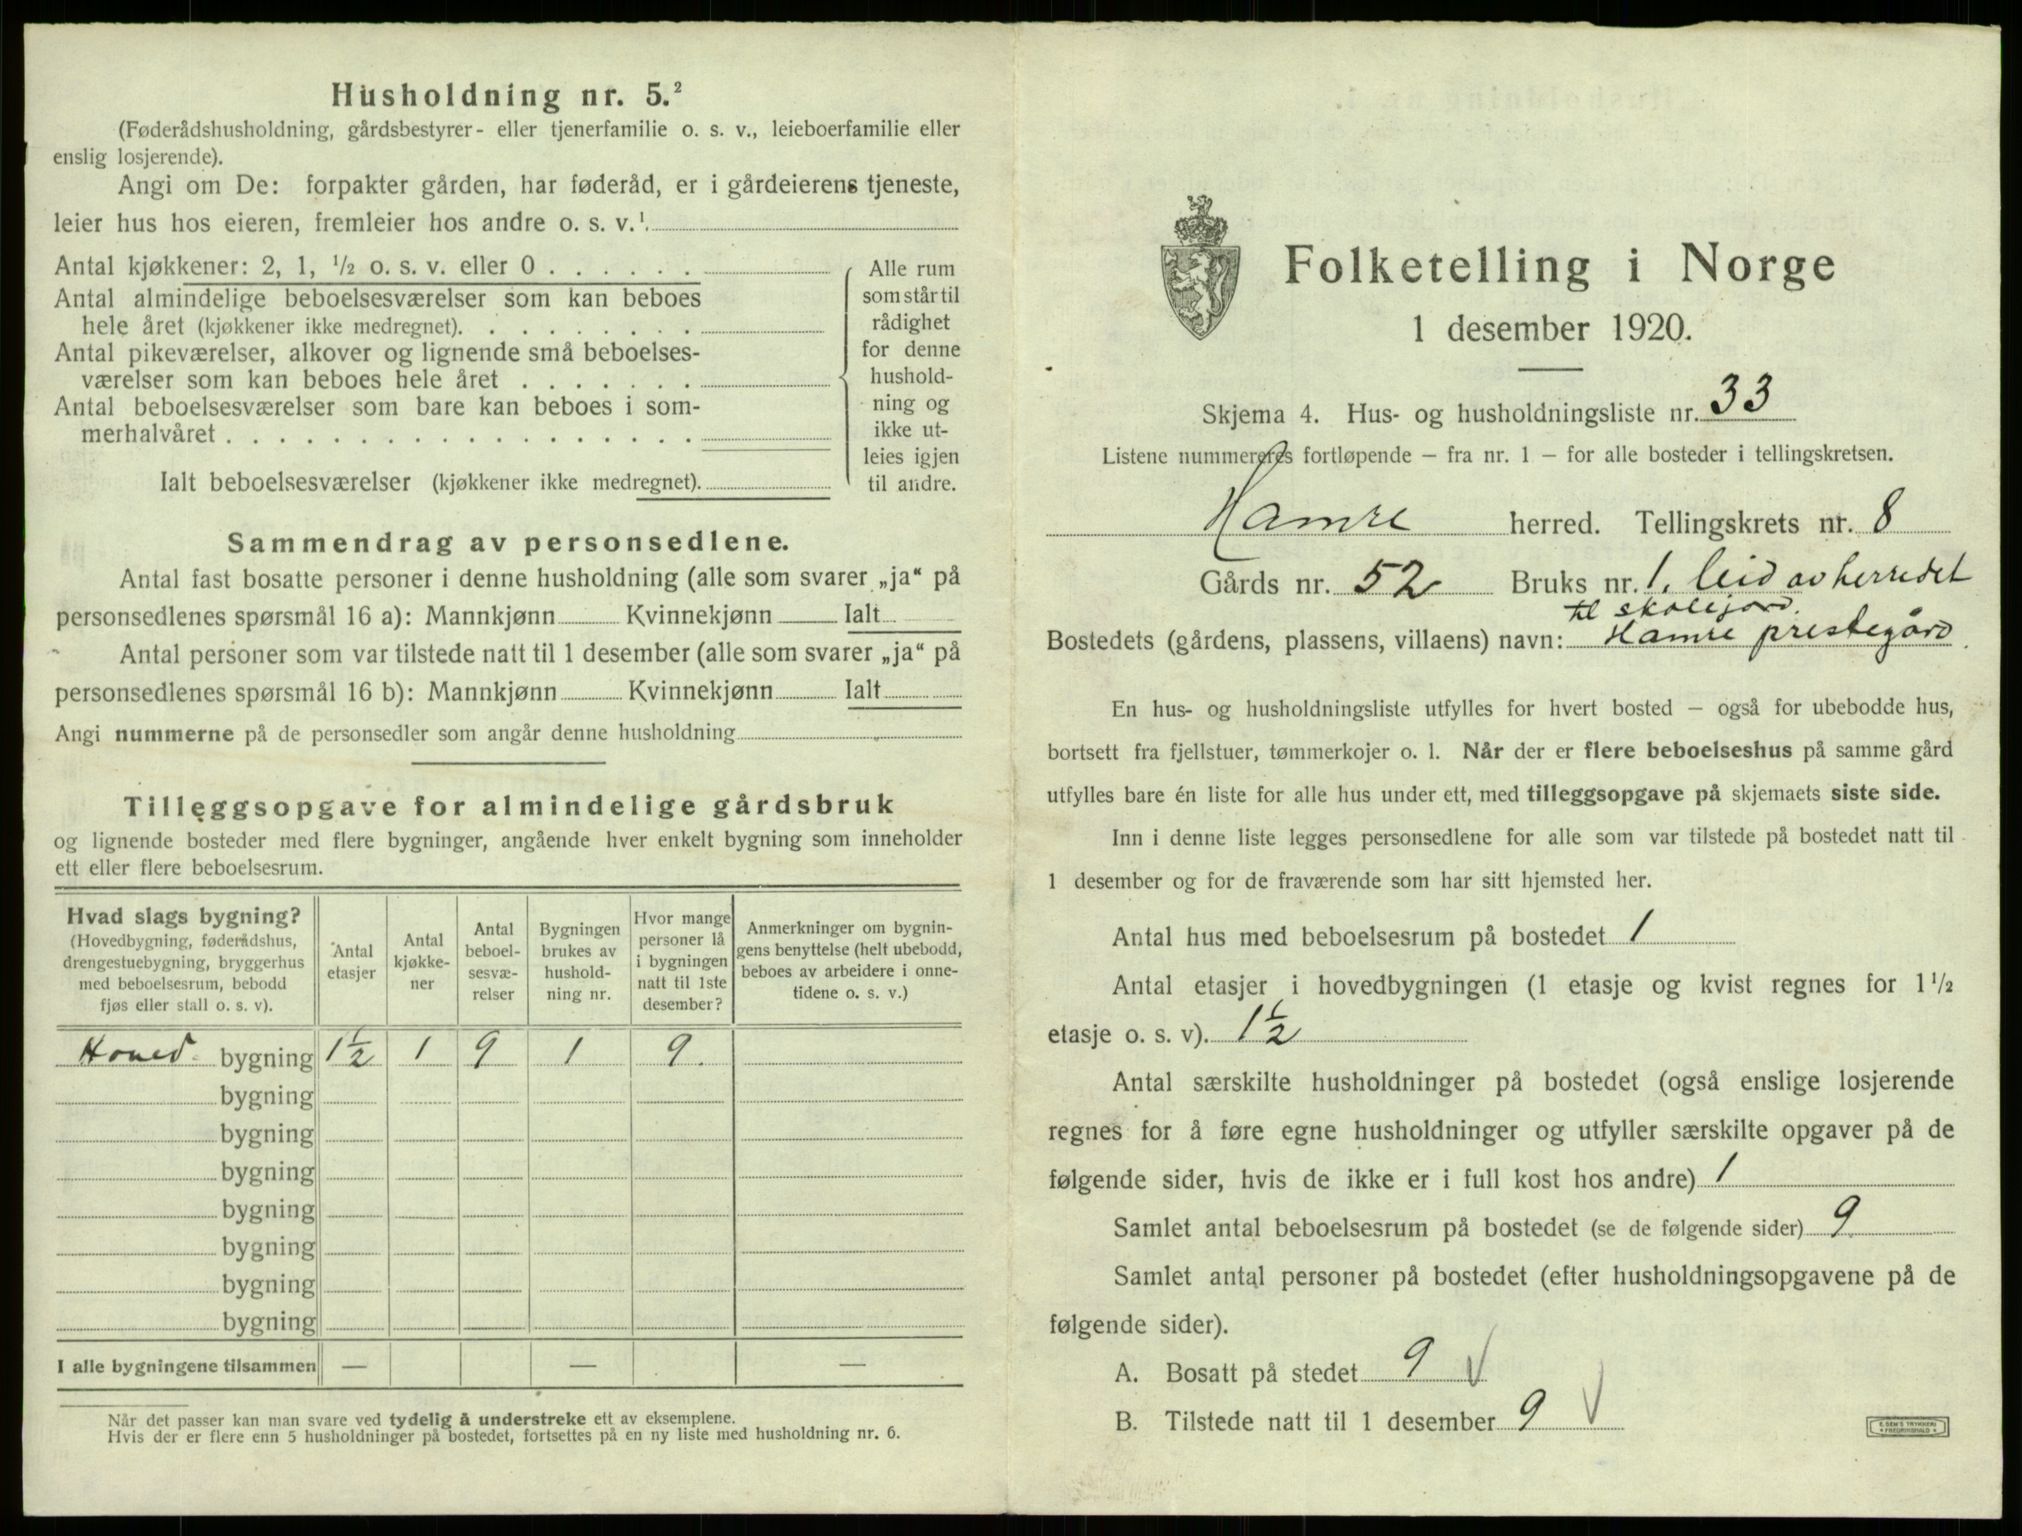 Husholdning nr. 5.²
(Føderådshusholdning, gårdsbestyrer- eller tjenerfamilie o. s. v., leieboerfamilie eller
enslig losjerende).
Angi om De: forpakter gården, har føderåd, er i gårdeierens tjeneste,
leier hus hos eieren, fremleier hos andre o. s. v.¹
Antal kjøkkener: 2, 1, ½ o. s. v. eller 0 . . . . . .
Antal almindelige beboelsesværelser som kan beboes
hele året (kjøkkener ikke medregnet). . . . . . . . .
Antal pikeværelser, alkover og lignende små beboelses-
værelser som kan beboes hele året . . . . . . .
Antal beboelsesværelser som bare kan beboes i som-
merhalvåret . . . . . . . . . . . . . . . . . .
Ialt beboelsesværelser (kjøkkener ikke medregnet).
Alle rum
som står til
rådighet
for denne
hushold-
ning og
ikke ut-
leies igjen
til andre.
Sammendrag av personsedlene.
Antal fast bosatte personer i denne husholdning (alle som svarer „ja“ på
personsedlenes spørsmål 16 a): Mannkjønn Kvinnekjønn Ialt
Antal personer som var tilstede natt til 1 desember (alle som svarer „ja“ på
personsedlenes spørsmål 16 b): Mannkjønn Kvinnekjønn Ialt
Angi nummerne på de personsedler som angår denne husholdning
Tilleggsopgave for almindelige gårdsbruk
og lignende bosteder med flere bygninger, angående hver enkelt bygning som inneholder
ett eller flere beboelsesrum.
Hvad slags bygning?
(Hovedbygning, føderådshus,
drengestuebygning, bryggerhus
med beboelsesrum, bebodd
fjøs eller stall o. s. v).
Antal
etasjer
Antal
kjøkke-
ner
Antal
beboel-
sesvæ-
relser
Bygningen
brukes av
hushold-
ning nr.
Hvor mange
personer lå
i bygningen
natt til 1ste
desember?
Anmerkninger om bygnin-
gens benyttelse (helt ubebodd,
beboes av arbeidere i onne-
tidene o. s. v.)
Hoved- bygning 1½ 1 9 1 9.
bygning
bygning
bygning
bygning
bygning
bygning
bygning
I alle bygningene tilsammen — — —
Når det passer kan man svare ved tydelig å understreke ett av eksemplene.
Hvis der er flere enn 5 husholdninger på bostedet, fortsettes på en ny liste med husholdning nr. 6.
Folketelling i Norge
1 desember 1920.
Skjema 4. Hus- og husholdningsliste nr. 33
Listene nummereres fortløpende – fra nr. 1 – for alle bosteder i tellingskretsen.
Hamre herred. Tellingskrets nr. 8
Gårds nr. 52 Bruks nr. 1, leid av herredet
til skolejord.
Bostedets (gårdens, plassens, villaens) navn: Hamre prestegård.
En hus- og husholdningsliste utfylles for hvert bosted – også for ubebodde hus,
bortsett fra fjellstuer, tømmerkojer o. l. Når der er flere beboelseshus på samme gård
utfylles bare én liste for alle hus under ett, med tilleggsopgave på skjemaets siste side.
Inn i denne liste legges personsedlene for alle som var tilstede på bostedet natt til
1 desember og for de fraværende som har sitt hjemsted her.
Antal hus med beboelsesrum på bostedet 1
Antal etasjer i hovedbygningen (1 etasje og kvist regnes for 1½
etasje o. s. v). 1½
Antal særskilte husholdninger på bostedet (også enslige losjerende
regnes for å føre egne husholdninger og utfyller særskilte opgaver på de
følgende sider, hvis de ikke er i full kost hos andre) 1
Samlet antal beboelsesrum på bostedet (se de følgende sider) 9.
Samlet antal personer på bostedet (efter husholdningsopgavene på de
følgende sider).
A. Bosatt på stedet 9 √
B. Tilstede natt til 1 desember 9 √
E. SEM'S TRYKKERI
* FREDRIKSHALD *